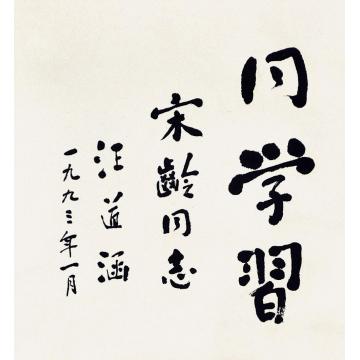 同学習
宋齡同志
汪道涵
一九九三年一月